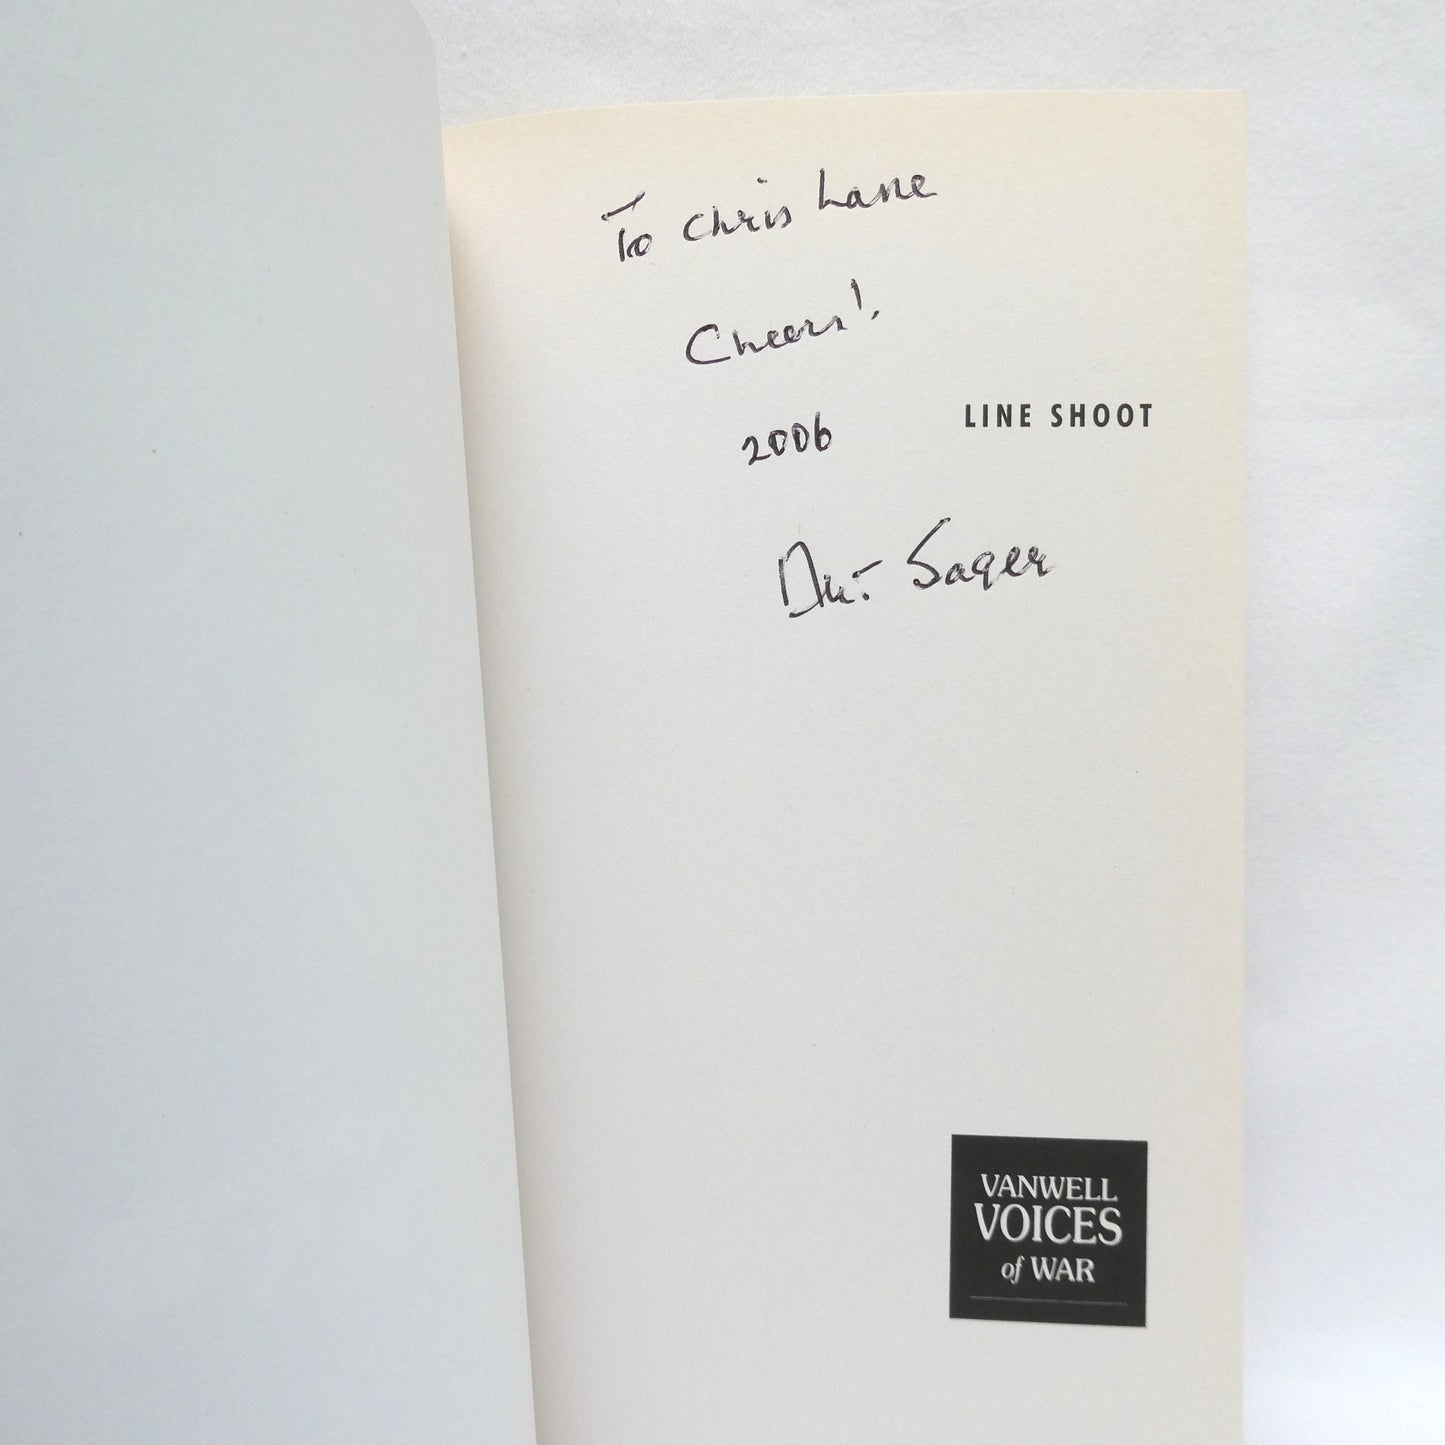 To Chris Lane
Cheers!
2006
LINE SHOOT
Art Sager
VANWELL
VOICES
of WAR